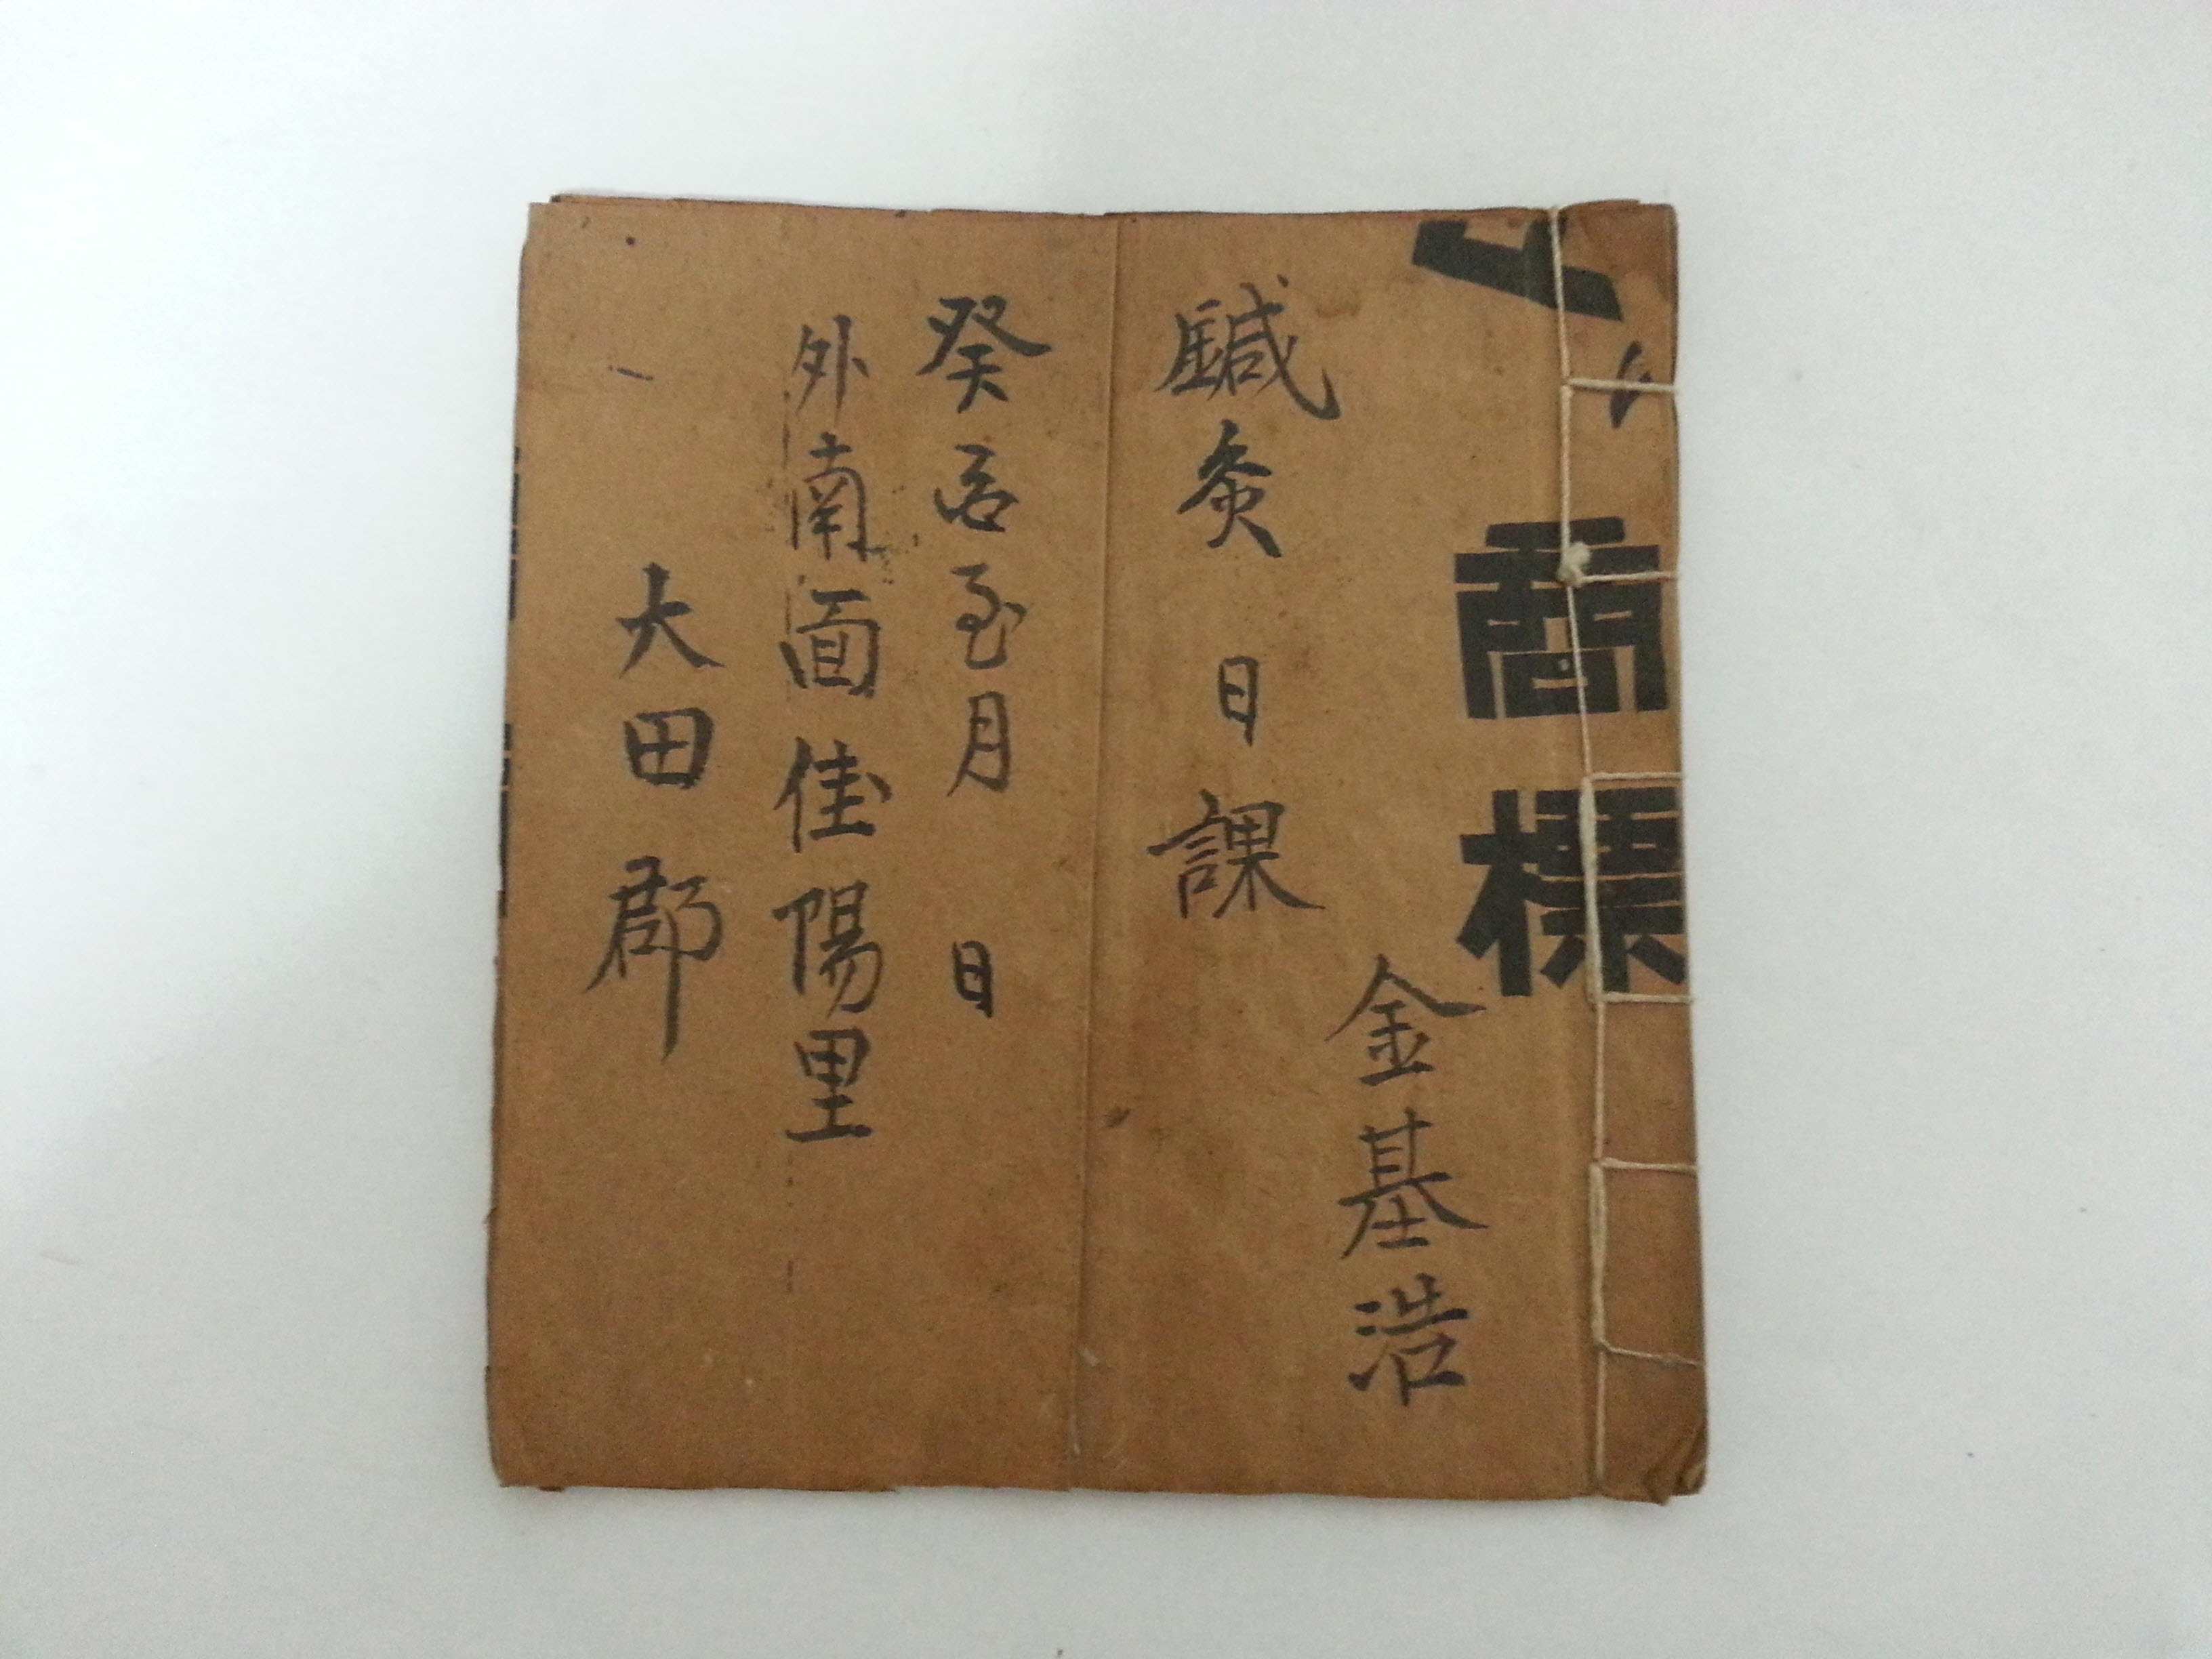 商標
金基浩
鍼灸 日課
癸 至月 日
外南面佳陽里
大田郡